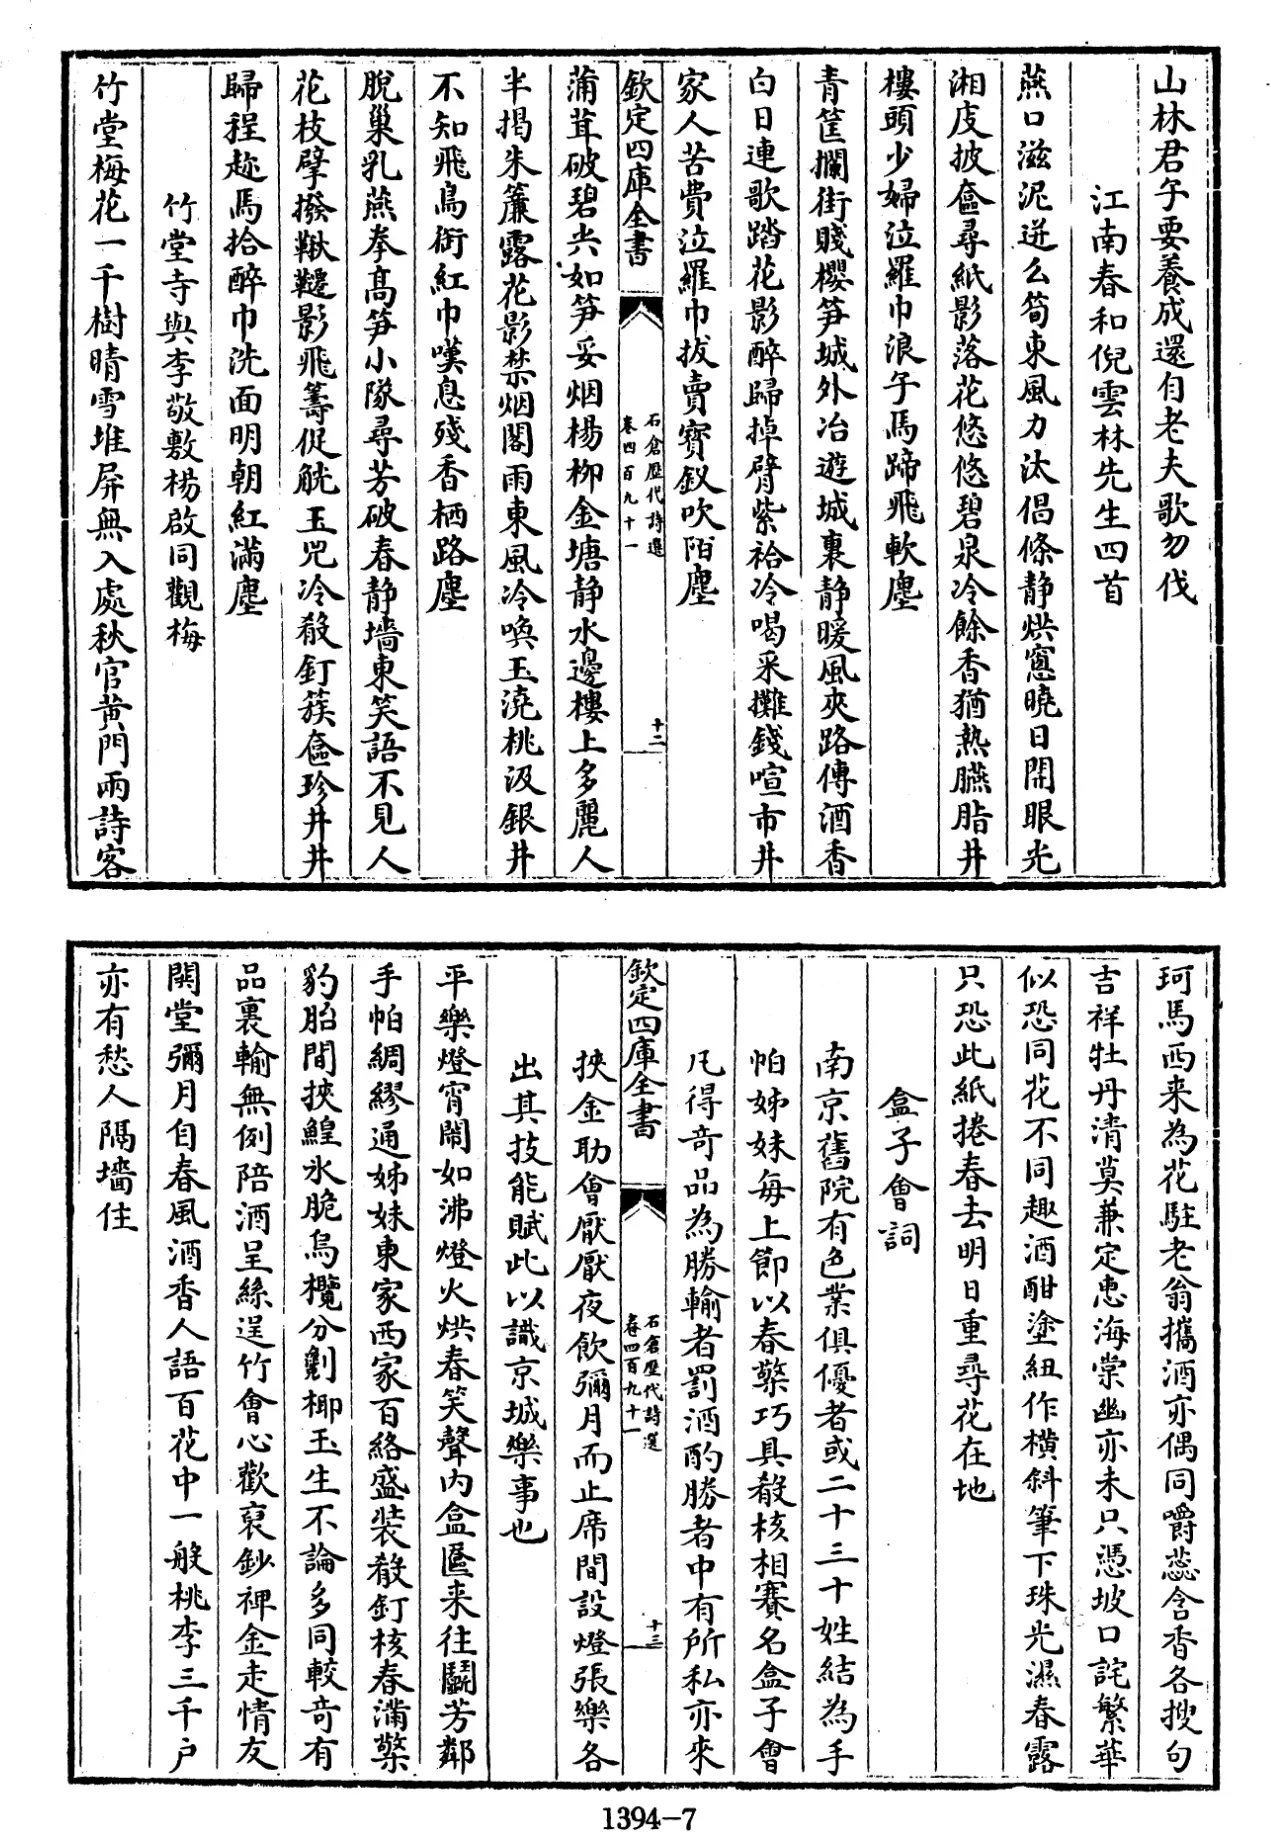 山林君子要養成還自老夫歌勿伐
江南春和倪雲林先生四首
燕口滋泥迸么筍東風力汰倡條静烘窻曉日開眼光
湘皮披奩尋紙影落花悠悠碧泉冷餘香猶熱臙脂井
樓頭少婦泣羅巾浪子馬蹄飛軟塵
青筐攔街賤櫻笋城外冶遊城裏静暖風夾路傳酒香
白日連歌踏花影醉歸掉臂紫袷冷喝采攤錢喧市井
家人苦費泣羅巾拔賣寳釵吹陌塵
欽定四庫全書
石倉歷代詩選
卷四百九十一
十二
蒲茸破碧尖如笋妥烟楊柳金塘静水邊樓上多麗人
半揭朱簾露花影禁烟閣雨東風冷喚玉澆桃汲銀井
不知飛鳥銜紅巾嘆息殘香栖路塵
脫巢乳燕拳高笋小隊尋芳破春静墻東笑語不見人
花枝擘撥鞦韆影飛籌促觥玉兕冷殽飣簇奩珍井井
歸程趂馬拾醉巾洗面明朝紅滿塵
竹堂寺與李敬敷楊啟同觀梅
竹堂梅花一千樹晴雪堆屏無入處秋官黄門兩詩客
珂馬西来為花駐老翁攜酒亦偶同嚼蕊含香各搜句
吉祥牡丹清莫兼定惠海棠幽亦未只憑坡口詫繁華
似恐同花不同趣酒酣塗紐作横斜筆下珠光濕春露
只恐此紙捲春去明日重尋花在地
盒子會詞
南京舊院有色業俱優者或二十三十姓結為手
帕姊妹每上節以春檠巧具殽核相賽名盒子會
凡得竒品為勝輸者罰酒酌勝者中有所私亦來
欽定四庫全書
石倉歷代詩選
卷四百九十一
十三
挾金助會厭厭夜飲彌月而止席間設燈張樂各
出其技能賦此以識京城樂事也
平樂燈宵閙如沸燈火烘春笑聲內盒匳来往鬭芳鄰
手帕綢繆通姊妹東家西家百絡盛装殽飣核春滿檠
豹胎間挾鰉氷脆烏欖分劖椰玉生不論多同較竒有
品裏輸無例陪酒呈絲逞竹會心歡裒鈔裨金走情友
鬨堂彌月自春風酒香人語百花中一般桃李三千户
亦有愁人隔墻住
1394-7